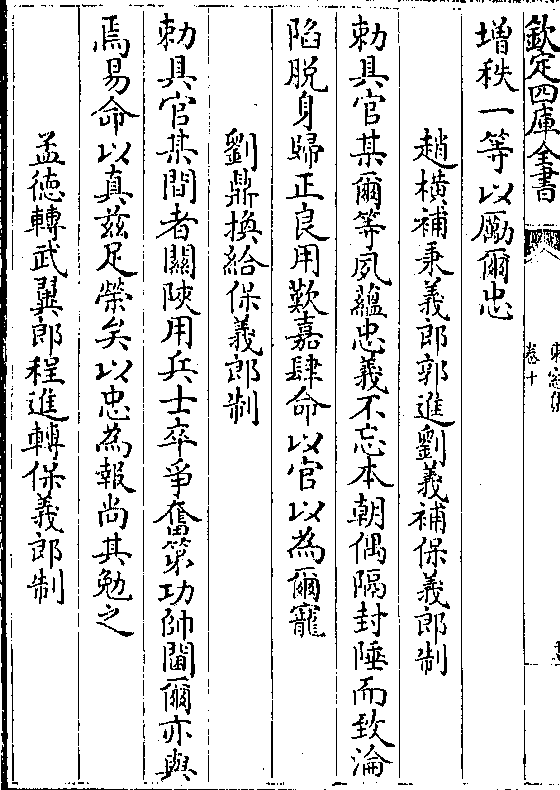 欽定四庫全書
卷十
增秩一等以勵爾忠
趙橫補秉義郎郭進劉義補保義郎制
勅具官某爾等夙蘊忠義不忘本朝偶隔封陲而致淪
陷脫身歸正良用歎嘉肆命以官以為爾寵
劉鼎換給保義郎制
勅具官某間者關陜用兵士卒爭奮第功帥閫爾亦與
焉易命以真兹足榮矣以忠為報尚其勉之
孟德轉武翼郎程進轉保義郎制